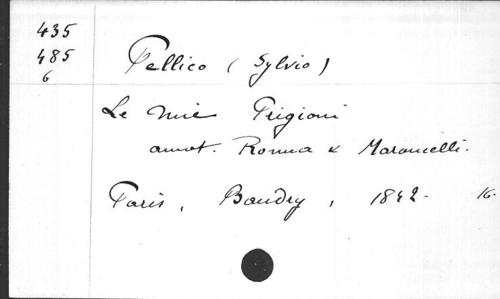 435
485
6
Pellico (Sylvio)
Le Mie Prigioni
annot. Romna & Maroncelli.
Paris, Baudry, 1842. 16.